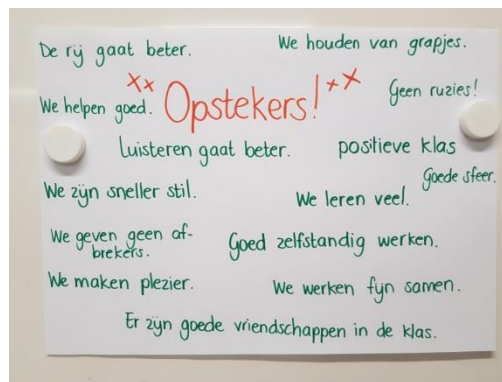 De rij gaat beter.
We houden van grapjes.
xx Opstekers! xx
Geen ruzies!
We helpen goed.
Luisteren gaat beter.
positieve klas
Goede sfeer.
We zijn sneller stil.
We leren veel.
We geven geen af-
brekers.
Goed zelfstandig werken.
We maken plezier.
We werken fijn samen.
Er zijn goede vriendschappen in de klas.